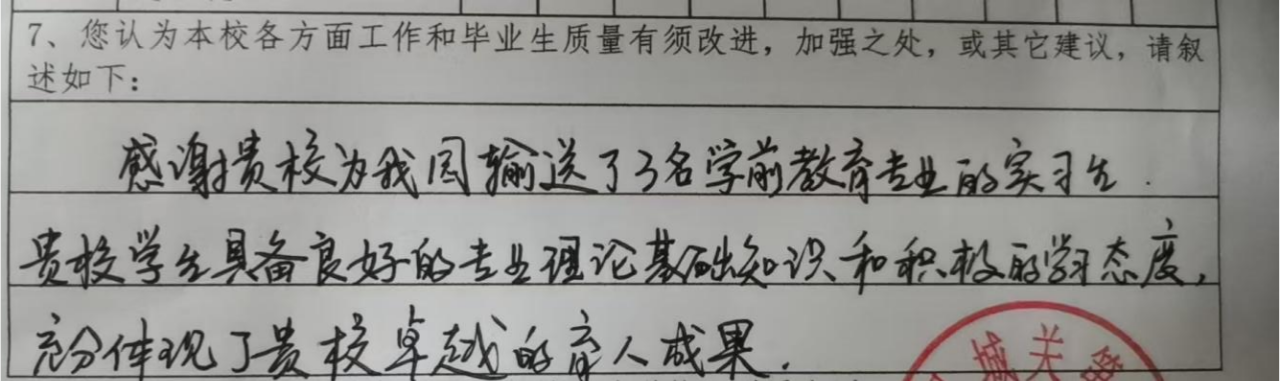 7、您认为本校各方面工作和毕业生质量有须改进，加强之处，或其它建议，请叙
述如下：
感谢贵校为我园输送了3名学前教育专业的实习生.
贵校学生具备良好的专业理论基础知识和积极的学习态度,
充分体现了贵校卓越的育人成果.
城关第